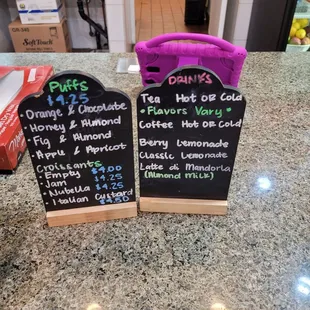 Soft Touch
Puffs
$4.25
Orange & Chocolate
• Honey & Almond
• Fig & Almond
• Apple & Apricot
Croissants
• Empty $4.00
• Jam $4.25
• Nutella $4.25
• Italian Custard
$4.50
DRINKS
Tea Hot or Cold
• Flavors Vary •
Coffee Hot or Cold
Berry Lemonade
Classic Lemonade
Latte di Mandorla
(Almond Milk)